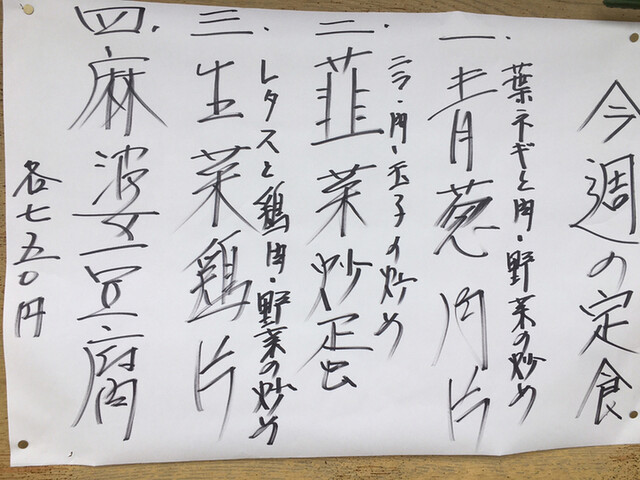 今週の定食
一.青葱肉片
葉ネギと肉・野菜の炒め
二.韮菜炒蛋
ニラ・肉・玉子の炒め
三.生菜鶏片
レタスと鶏肉・野菜の炒め
四.麻婆豆腐
各七五〇円